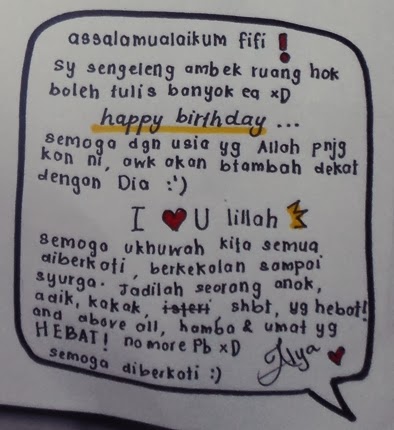 assalamualaikum fifi !
sy sengeleng ambek ruang hok
boleh tulis banyok eq xD
happy birthday ...
semoga dgn usia yg Allah pnjg
kan ni, awk akan btambah dekat
dengan Dia :')
I ❤ U lillah
semoga ukhuwah kita semua
diberkati, berkekalan sampai
syurga. Jadilah seorang anak,
adik, kakak, isteri shbt, yg hebat!
and above all, hamba & umat yg
HEBAT! no more Pb xD
semoga diberkati :)
Alya ❤